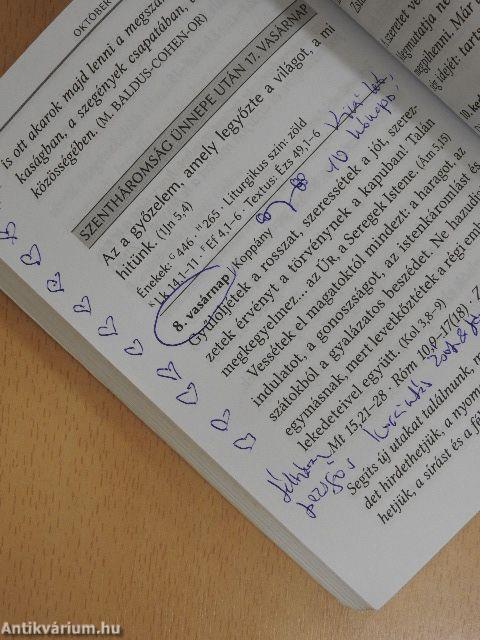 OKTÓBER
is ott akarok majd lenni a megszá
kaságban, a szegények csapatában, a
közösségében. (M. BALDUS-COHEN-OR)
SZENTHÁROMSÁG ÜNNEPE UTÁN 17. VASÁRNAP
Az a győzelem, amely legyőzte a világot, a mi
hitünk. (1Jn 5,4)
Énekek: G 246, H 265 · Liturgikus szín: zöld
Lk 14,1–11 · F Ef 4,1–6 Textus: Ézs 49,1–6
8. vasárnap Koppány
10 hónapos,
Gyűlöljétek a rosszat, szeressétek a jót, szerez-
zetek érvényt a törvénynek a kapuban! Talán
megkegyelmez... az ÚR, a Seregek Istene. (Ám 5,15)
Vessétek el magatoktól mindezt: a haragot, az
indulatot, a gonoszságot, az istenkáromlást és
szátokból a gyalázatos beszédet. Ne hazudj
egymásnak, mert levetkőztétek a régi emb
lekedeteivel együtt. (Kol 3,8–9)
Mt 15,21–28 · Róm 10,9–17(18) · Z
Segíts új utakat találnunk, m
det hirdethetjük, a nyomo
hetjük, a sírást és a fé
szeretet
megmutatja ne
megpihenni. Már
idejét: tarts
Antikvárium.hu